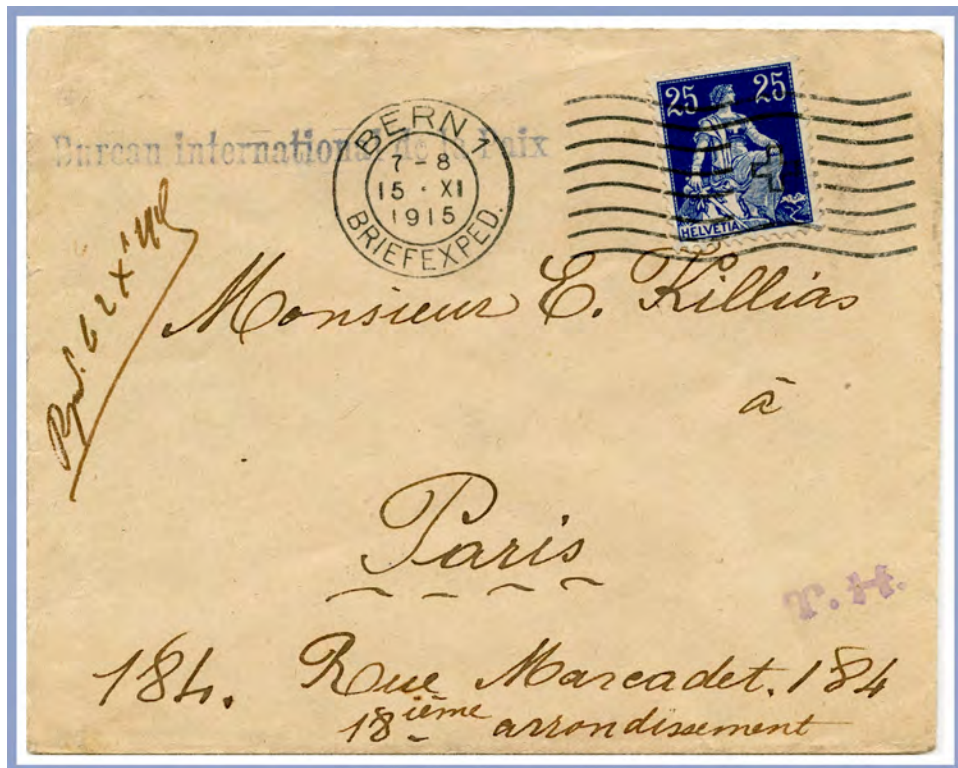 Bureau international de la Paix
BERN 1
7-8
15·XI
1915
BRIEFEXPED.
25 25
HELVETIA
Monsieur E. Killias
à
Paris
184. Rue Marcadet. 184
18ième arrondissement